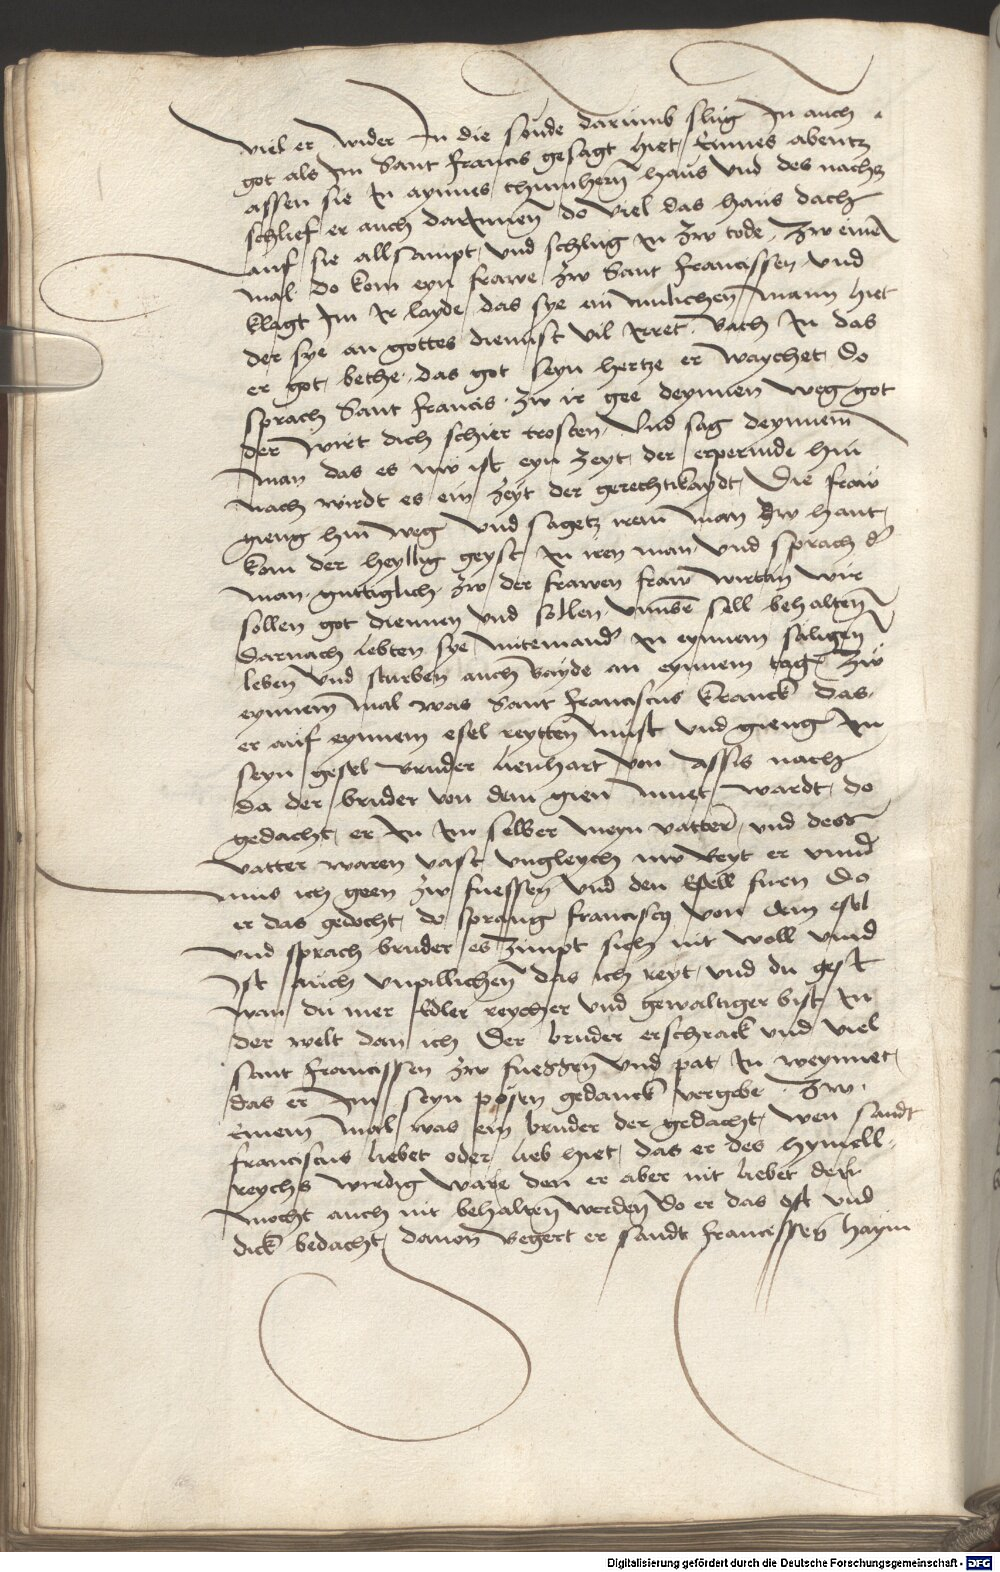 viel er wider In die sunde darumb slug In auch
got als Im Sant Francis gesagt hiet Eines abentz
assen sie In aynnes thumhern haus und des nachtz
schlief er auch darInnen do viel das haus dach
auf sie allsampt und schlug In zw tode Zw einem
mal do kom eyn frawe zw Sant Francissen und
klagt Im Ir layde das sye ein unlichenn mann hiet
der sye an gottes dienst vil Irret vatz In das
er got bethe das got seyn hertze er waychet do
sprach Sant Francis zw ir gee deynnen weg got
der wirt dich schier trosten und sag deynnem
man das es nw ist eyn zeyt der erpermde hin
nach wirdt es ein zeyt der gerechtikaydt Die fraw
gieng hin weg und sagetz irem man zw hant
kom der heyllig geyst In iren man und sprach der
man guttiglich zw der frawen fraw wirttin wir
sollen got diennen und sollen unnser sell behalten
Darnach lebten sye miteinander In eynnem saligen
leben und sturben auch bayde an eynnem tag Zw
eynnem mal was Sant Franciscus kranck das
er auf eynnem esel reytten must und gieng Im
seyn gesel bruder lienhart von Assis nach
da der bruder von dem gien muet wardt do
gedacht er In Im selber meyn vatter und des
vatter waren vast ungleych nw reyt er unnd
mus ich geen zw fuessen und den Esell furn Do
er das gedocht do sprang Franciscus von dem esel
und sprach bruder es zimpt sich nit woll unnd
Ist auch unpillichen das ich reyt und du gest
wan du mer Edler reycher und gewaltiger bist In
der welt dan ich Der bruder erschrack und viel
sant Francissen zw fuessen und pat In weynnet
das er Im seyn posen gedanck vergebe Zw
Einem mal was ein bruder der gedacht wen sandt
Franciscus liebet oder lieb hiet das er des hymell-
reychs wirdig ware den er aber nit liebet der
mocht auch nit behalten werden Do er das oft und
dick bedacht davon begert er sandt Francissen haym
Digitalisierung gefördert durch die Deutsche Forschungsgemeinschaft - DFG